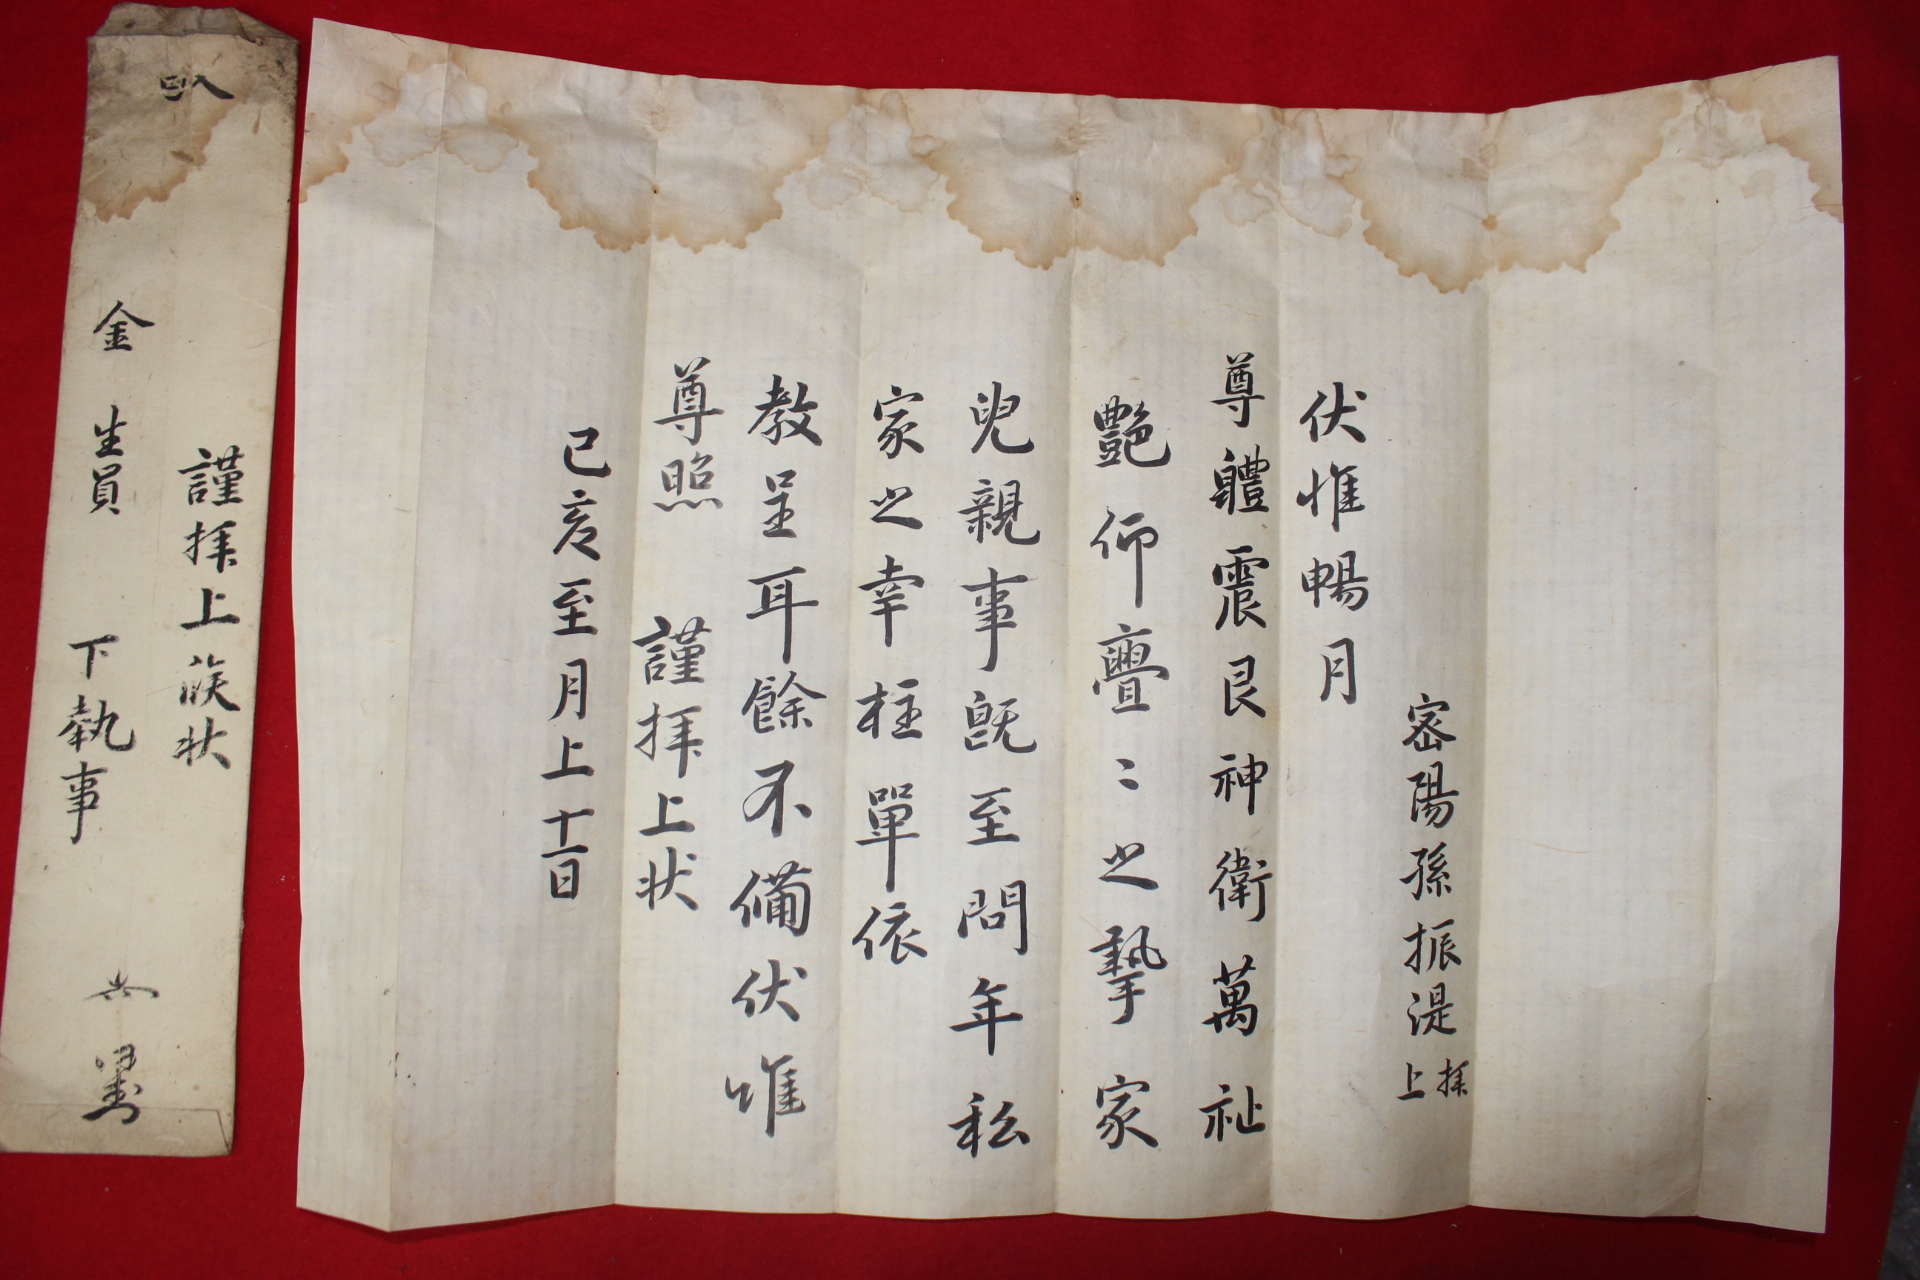 密陽孫振湜 拜上
伏惟暢月
尊體震艮神衛萬祉
艶仰亹〻之摯家
兒親事旣至問年私
家之幸柱單依
教呈耳餘不備伏惟
尊照 謹拜上狀
己亥至月上十一日
謹拜上候狀
金生員 下執事